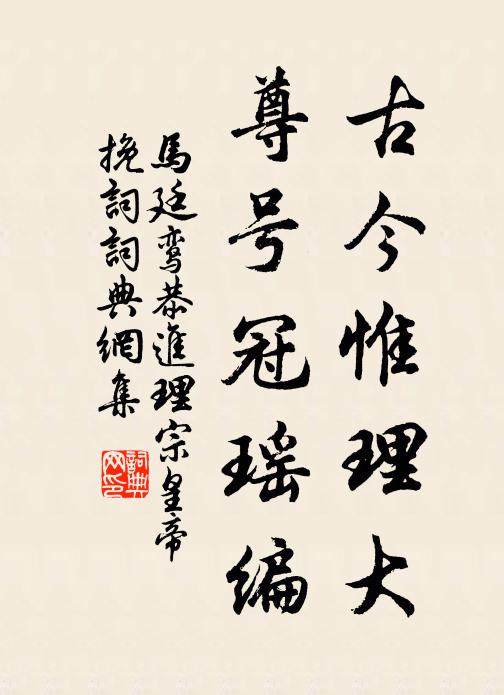 古今惟理大
尊号冠瑶编
馬廷鸾恭進理宗皇帝
挽詞詞典網集
詞典网印